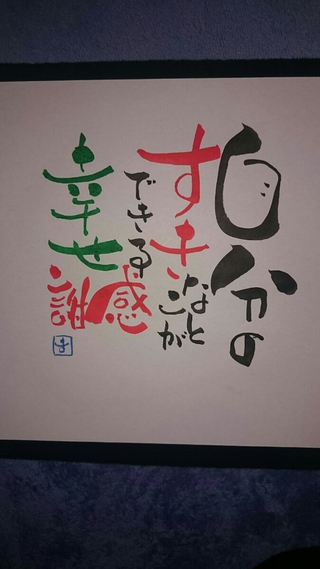 自分の
すきなことが
できる
幸せ
感謝